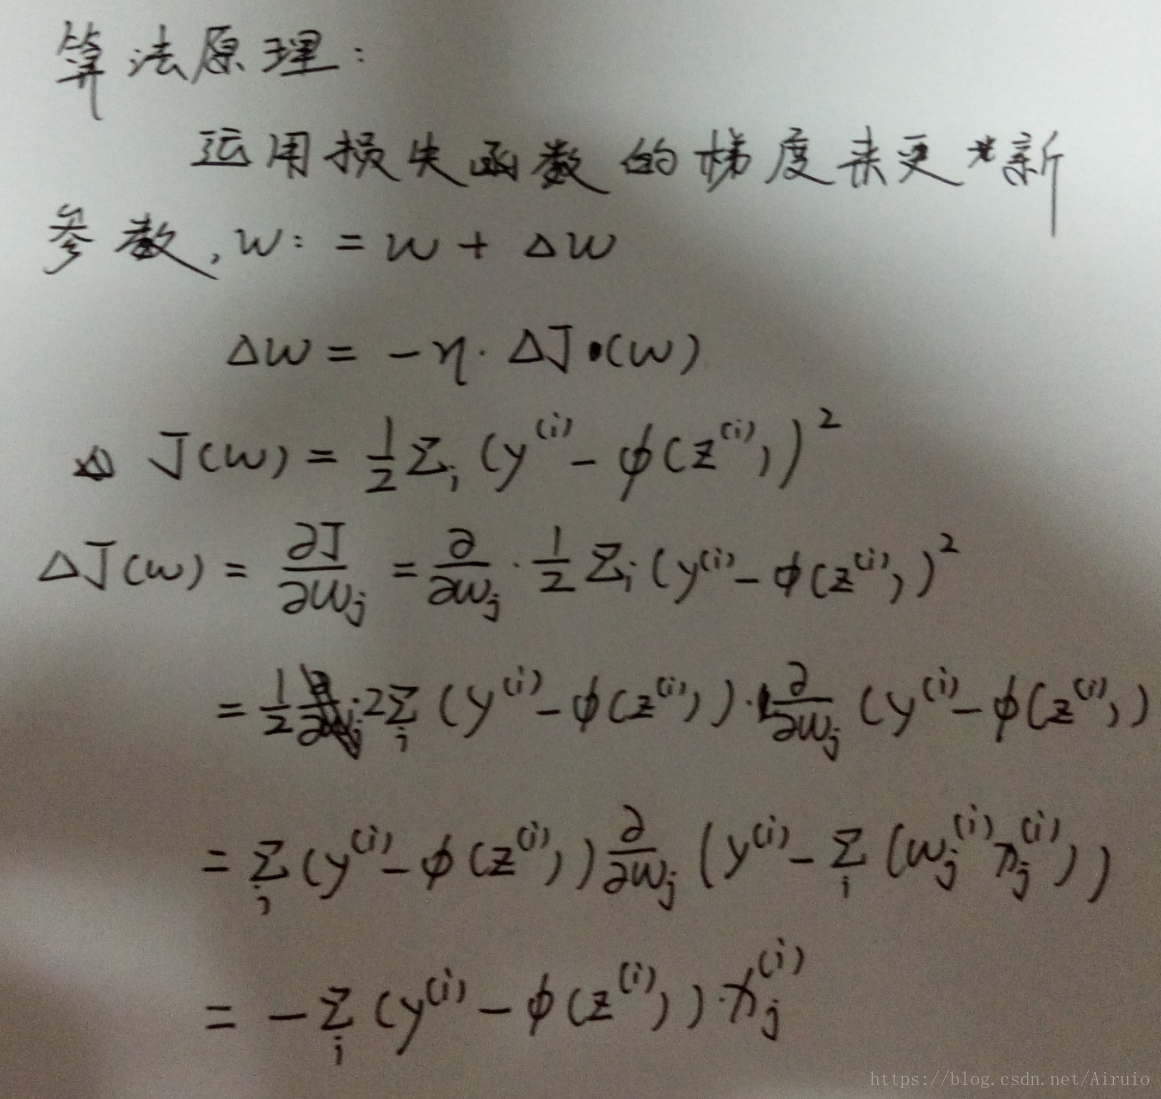 算法原理:
运用损失函数的梯度来更新
参数, w := w + Δw
Δw = -η · ΔJ(w)
J(w) = 1/2 Σ_i (y^(i) - φ(z^(i)))^2
ΔJ(w) = ∂J/∂w_j = ∂/∂w_j · 1/2 Σ_i (y^(i) - φ(z^(i)))^2
= 1/2 · 2 Σ_i (y^(i) - φ(z^(i))) · ∂/∂w_j (y^(i) - φ(z^(i)))
= Σ_i (y^(i) - φ(z^(i))) ∂/∂w_j (y^(i) - Σ_i (w_j^(i) x_j^(i)))
= - Σ_i (y^(i) - φ(z^(i))) · x_j^(i)
https://blog.csdn.net/Airuio